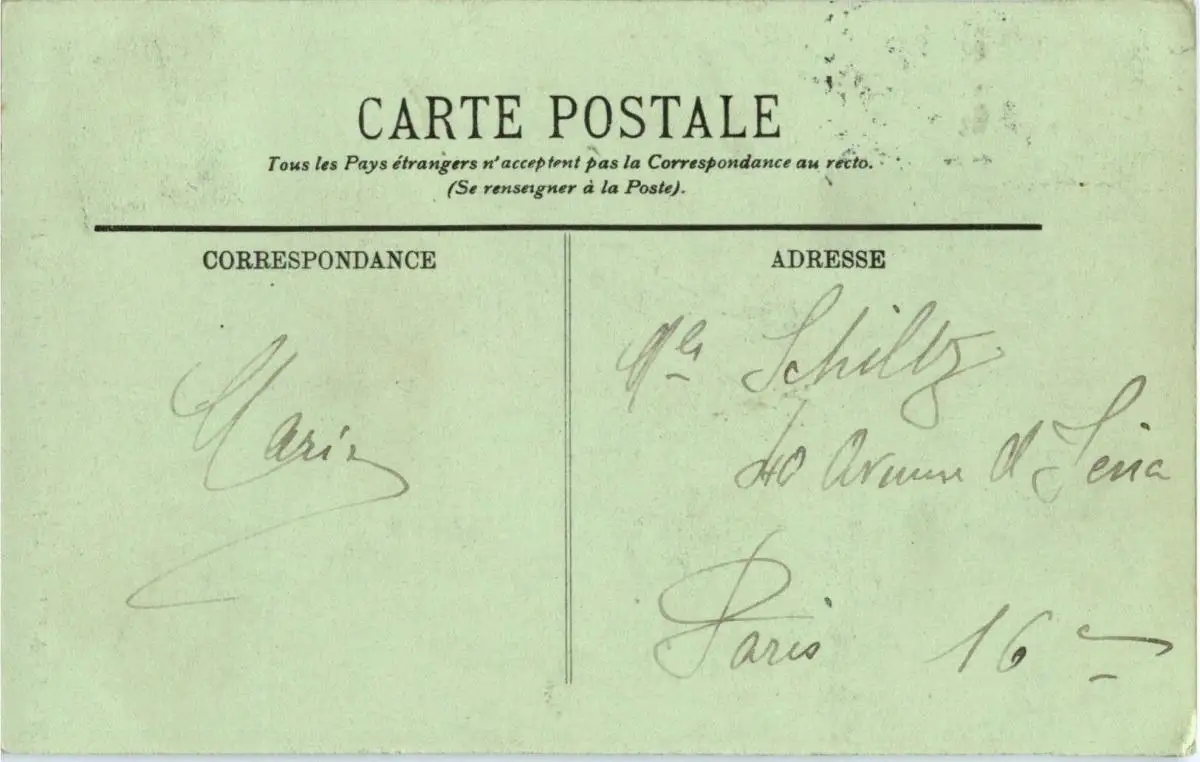 CARTE POSTALE
Tous les Pays étrangers n'acceptent pas la Correspondance au recto.
(Se renseigner à la Poste).
CORRESPONDANCE
Marie
ADRESSE
Mle Schiltz
40 Avenue d'Iéna
Paris 16e